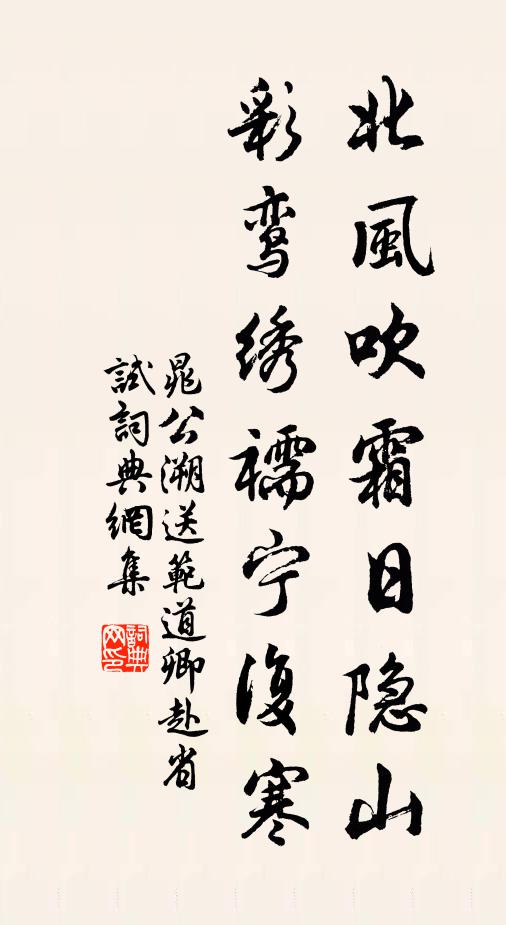 北風吹霜日隐山
彩鸾绣襦宁復寒
晁公溯送範道卿赴省
試詞典網集
詞典
网印